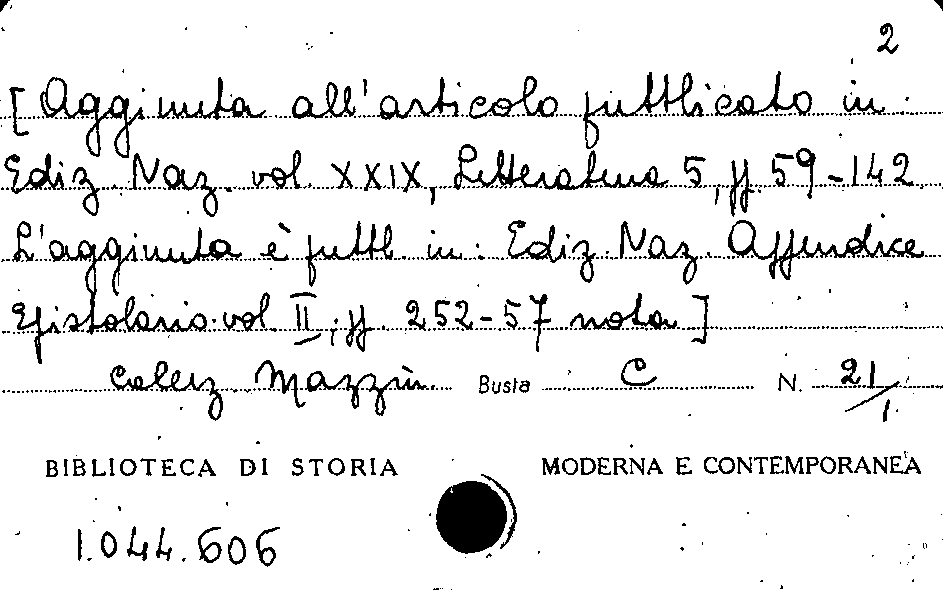 2
[Aggiunta all'articolo pubblicato in:
Ediz. Naz. vol. XXIX, Letteratura 5, pp. 59-142.
L'aggiunta è pubbl. in: Ediz. Naz. Appendice
Epistolario. vol. II, pp. 252-57 nota]
Collez. Mazzin. Busta C N. 21/1.
BIBLIOTECA DI STORIA MODERNA E CONTEMPORANEA
1.044.606